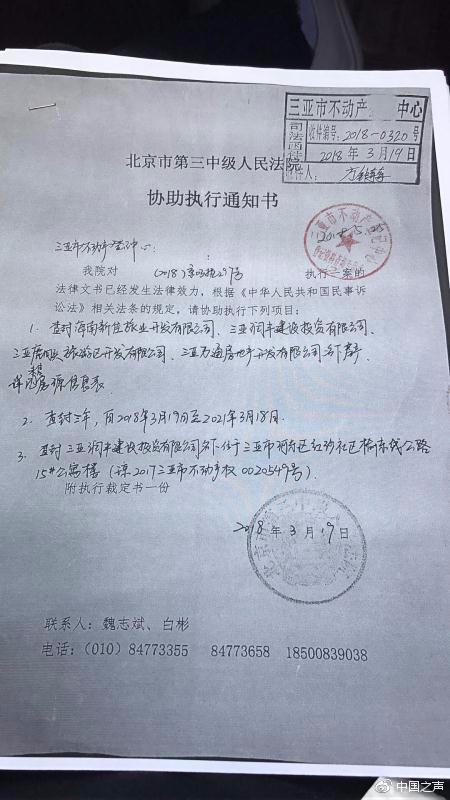 三亚市不动产 中心
司法函件
收件编号：2018-0320号
2018年3月19日
收件人：
北京市第三中级人民法院
协助执行通知书
三亚市不动产登记中心：
我院对 (2018)京03执29号 执行一案的
法律文书已经发生法律效力，根据《中华人民共和国民事诉
讼法》相关法条的规定，请协助执行下列项目：
1. 查封海南新佳旅业开发有限公司、三亚润丰建设投资有限公司、
三亚 旅游区开发有限公司、三亚万通房地产开发有限公司名下房产
详见房源信息表
2. 查封三年，自2018年3月19日至2021年3月18日.
3. 查封三亚润丰建设投资有限公司名下位于三亚市河东区红沙社区榆东线公路
15#公寓楼（琼2017三亚市不动产权0020549号）.
附执行裁定书一份
2018年3月19日
联系人：魏志斌、白彬
电话：(010) 84773355 84773658 18500839038
中国之声